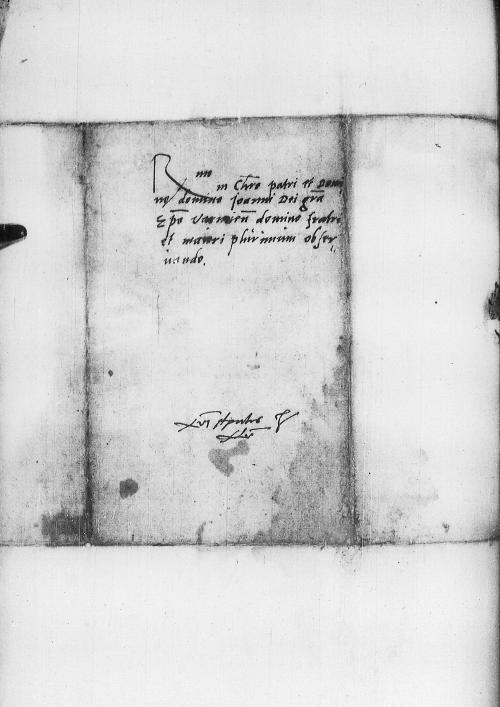 R mo
in Chro patri et Domi
no domino Joanni Dei gra
Epo Varmien domino fratri
et maiori plurimum obser
uando.